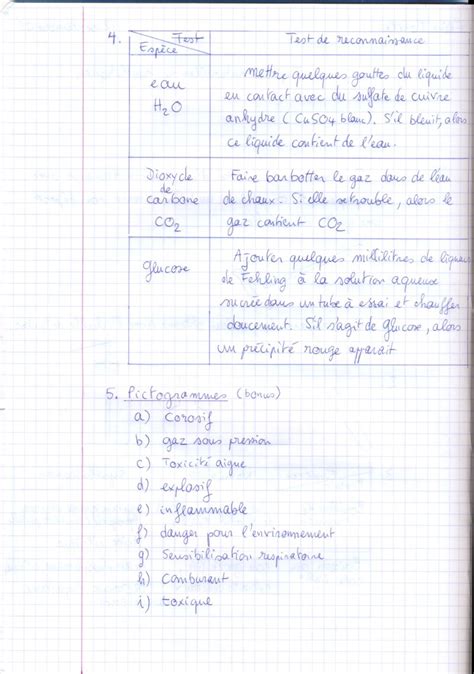 4.
Test
Espèce
Test de reconnaissance
eau
H2O
Mettre quelques gouttes du liquide
en contact avec du sulfate de cuivre
anhydre (CuSO4 blanc). S'il bleuit, alors
ce liquide contient de l'eau.
Dioxyde
de
carbone
CO2
Faire barbotter le gaz dans de l'eau
de chaux. Si elle se trouble, alors le
gaz contient CO2
Glucose
Ajouter quelques millilitres de liqueur
de Fehling à la solution aqueuse
sucrée dans un tube à essai et chauffer
doucement. S'il s'agit de glucose, alors
un précipité rouge apparaît
5. Pictogrammes (bonus)
a) Corosif
b) gaz sous pression
c) Toxicité aigue
d) explosif
e) inflammable
f) danger pour l'environnement
g) Sensibilisation respiratoire
h) Comburant
i) toxique